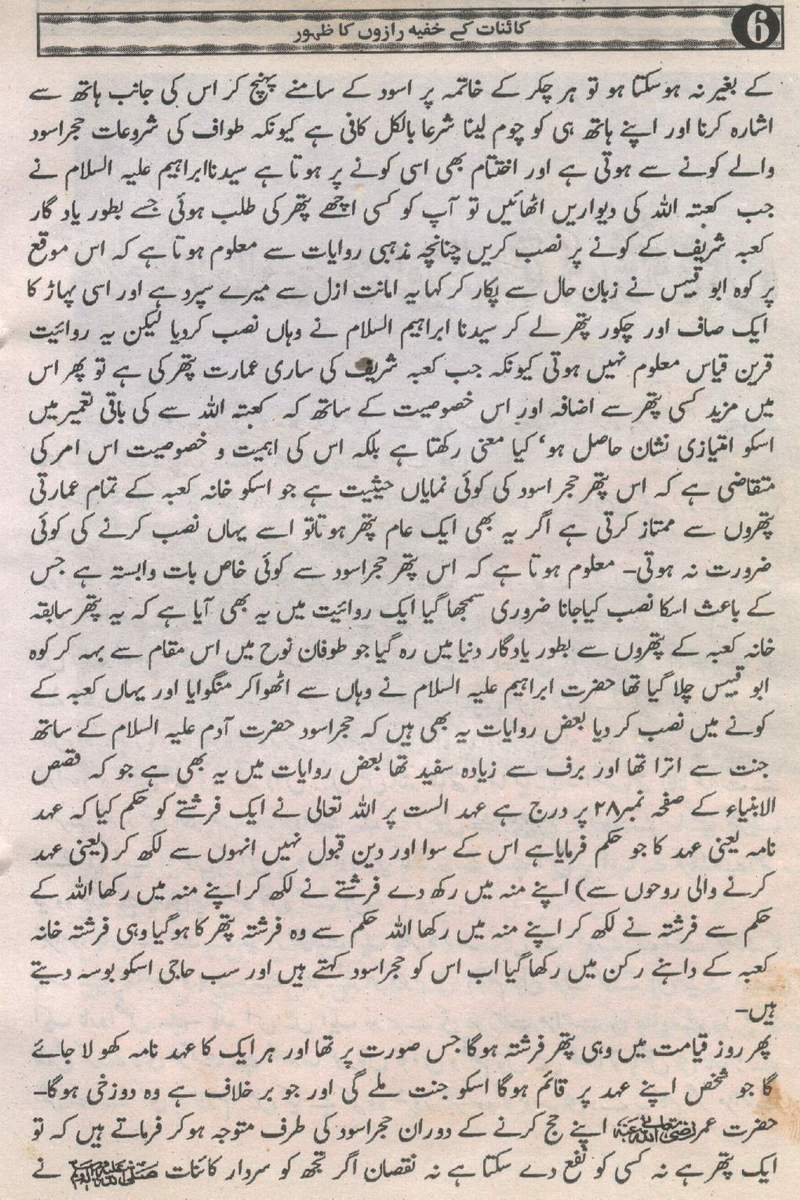 6
کائنات کے خفیہ رازوں کا ظہور
کے بغیر نہ ہو سکتا ہو تو ہر چکر کے خاتمہ پر اسود کے سامنے پہنچ کر اس کی جانب ہاتھ سے
اشارہ کرنا اور اپنے ہاتھ ہی کو چوم لینا شرعا بالکل کافی ہے کیونکہ طواف کی شروعات حجراسود
والے کونے سے ہوتی ہے اور اختتام بھی اسی کونے پر ہوتا ہے سیدنا ابراہیم علیہ السلام نے
جب کعبتہ اللہ کی دیواریں اٹھائیں تو آپ کو کسی اچھے پتھر کی طلب ہوئی جسے بطور یادگار
کعبہ شریف کے کونے پر نصب کریں چنانچہ مذہبی روایات سے معلوم ہوتا ہے کہ اس موقع
پر کوہ ابو قیس نے زبان حال سے پکار کر کہا یہ امانت ازل سے میرے سپرد ہے اور اسی پہاڑ کا
ایک صاف اور چکور پتھر لے کر سیدنا ابراہیم السلام نے وہاں نصب کردیا لیکن یہ روائیت
قرین قیاس معلوم نہیں ہوتی کیونکہ جب کعبہ شریف کی ساری عمارت پتھر کی ہے تو پھر اس
میں مزید کسی پتھر سے اضافہ اور اس خصوصیت کے ساتھ کہ کعبتہ اللہ سے کی باقی تعمیر میں
اسکو امتیازی نشان حاصل ہو، کیا معنی رکھتا ہے بلکہ اس کی اہمیت و خصوصیت اس امر کی
متقاضی ہے کہ اس پتھر حجر اسود کی کوئی نمایاں حیثیت ہے جو اسکو خانہ کعبہ کے تمام عمارتی
پتھروں سے ممتاز کرتی ہے اگر یہ بھی ایک عام پتھر ہوتا تو اسے یہاں نصب کرنے کی کوئی
ضرورت نہ ہوتی۔ معلوم ہوتا ہے کہ اس پتھر حجراسود سے کوئی خاص بات وابستہ ہے جس
کے باعث اسکا نصب کیا جانا ضروری سمجھا گیا ایک روائیت میں یہ بھی آیا ہے کہ یہ پتھر سابقہ
خانہ کعبہ کے پتھروں سے بطور یادگار دنیا میں رہ گیا جو طوفان نوح میں اس مقام سے بہہ کر کوہ
ابو قیس چلا گیا تھا حضرت ابراہیم علیہ السلام نے وہاں سے اٹھوا کر منگوایا اور یہاں کعبہ کے
کونے میں نصب کر دیا بعض روایات یہ بھی ہیں کہ حجراسود حضرت آدم علیہ السلام کے ساتھ
جنت سے اترا تھا اور برف سے زیادہ سفید تھا بعض روایات میں یہ بھی ہے جو کہ قصص
الابنیاء کے صفحہ نمبر ۲۸ پر درج ہے عہد الست پر اللہ تعالی نے ایک فرشتے کو حکم کیا کہ عہد
نامہ یعنی عہد کا جو حکم فرمایا ہے اس کے سوا اور دین قبول نہیں انہوں سے لکھ کر (یعنی عہد
کرنے والی روحوں سے) اپنے منہ میں رکھ دے فرشتے نے لکھ کر اپنے منہ میں رکھا اللہ کے
حکم سے فرشتہ نے لکھ کر اپنے منہ میں رکھا اللہ حکم سے وہ فرشتہ پتھر کا ہو گیا وہی فرشتہ خانہ
کعبہ کے داہنے رکن میں رکھا گیا اب اس کو حجراسود کہتے ہیں اور سب حاجی اسکو بوسہ دیتے
ہیں۔
پھر روز قیامت میں وہی پتھر فرشتہ ہوگا جس صورت پر تھا اور ہر ایک کا عہد نامہ کھولا جائے
گا جو شخص اپنے عہد پر قائم ہوگا اسکو جنت ملے گی اور جو برخلاف ہے وہ دوزخی ہوگا۔
حضرت عمر رضی اللہ تعالی عنہ اپنے حج کرنے کے دوران حجراسود کی طرف متوجہ ہو کر فرماتے ہیں کہ تو
ایک پتھر ہے نہ کسی کو نفع دے سکتا ہے نہ نقصان اگر تجھ کو سردار کائنات صلی اللہ علیہ وسلم نے